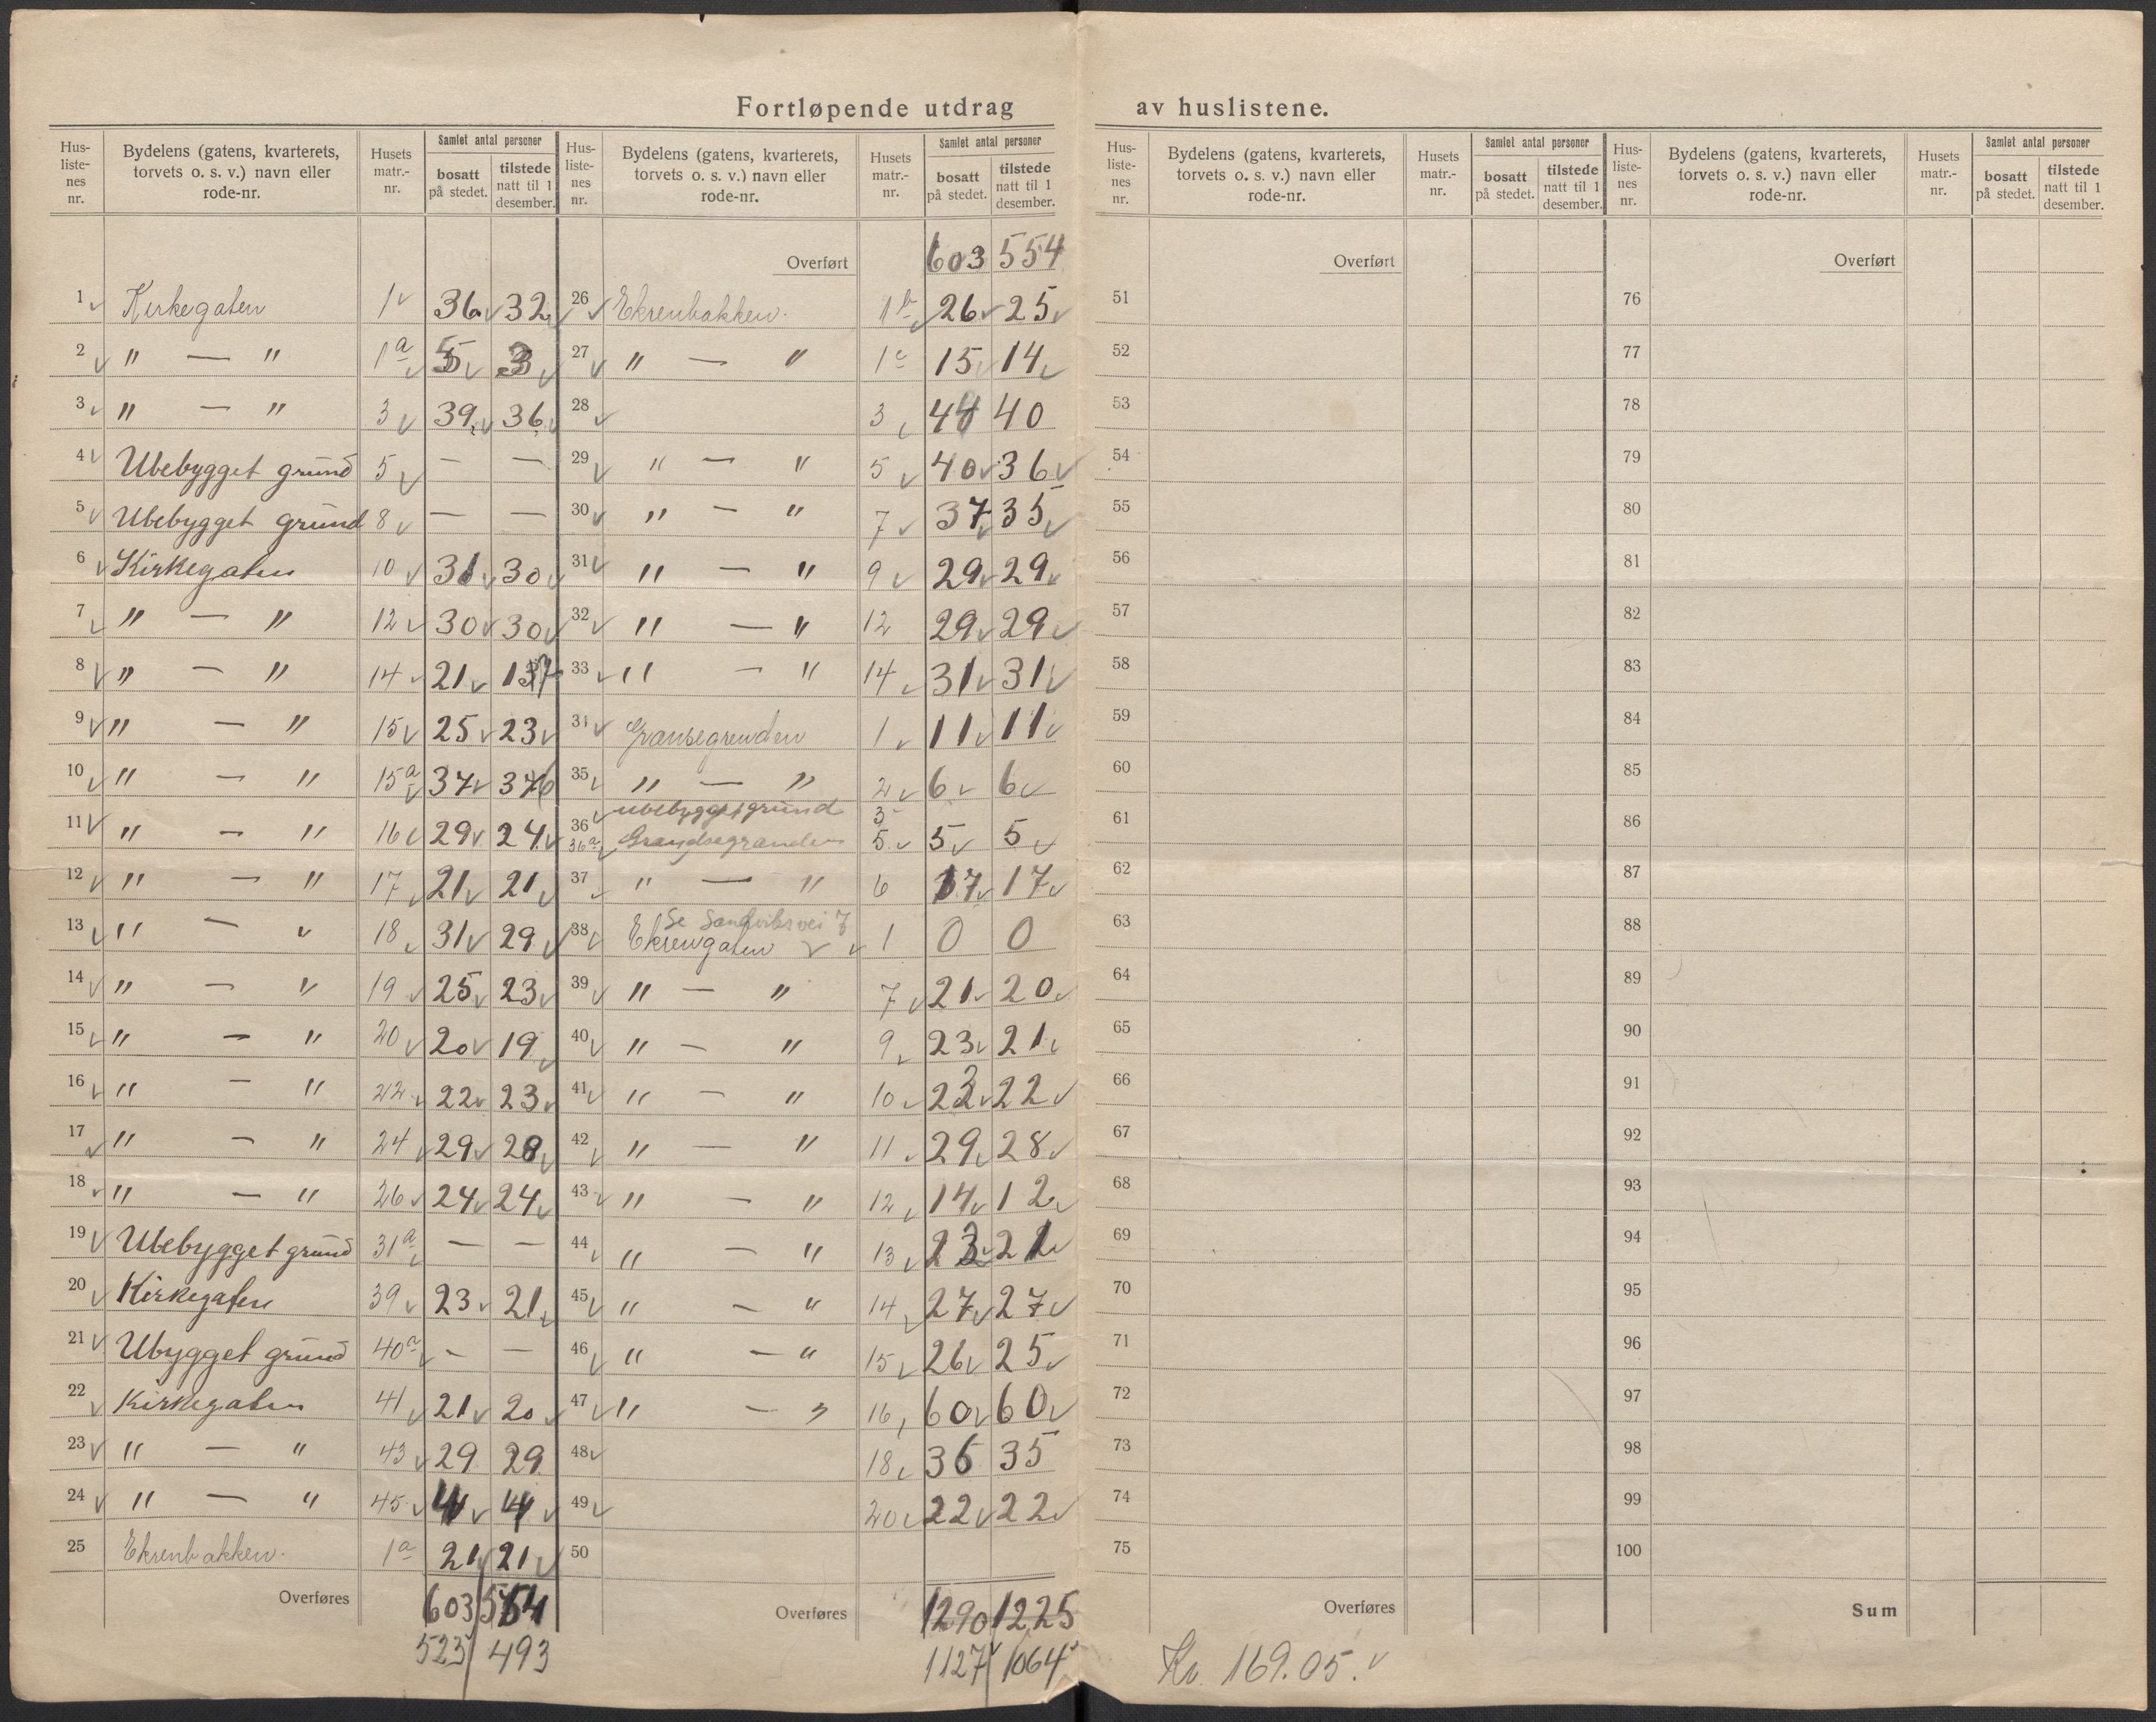 Fortløpende utdrag av huslistene.
Hus-liste-nes nr. | Bydelens (gatens, kvarterets, torvets o. s. v.) navn eller rode-nr. | Husets matr.-nr. | Samlet antal personer bosatt på stedet. | tilstede natt til 1 desember.
Hus-liste-nes nr. | Bydelens (gatens, kvarterets, torvets o. s. v.) navn eller rode-nr. | Husets matr.-nr. | Samlet antal personer bosatt på stedet. | tilstede natt til 1 desember.
Hus-liste-nes nr. | Bydelens (gatens, kvarterets, torvets o. s. v.) navn eller rode-nr. | Husets matr.-nr. | Samlet antal personer bosatt på stedet. | tilstede natt til 1 desember.
Hus-liste-nes nr. | Bydelens (gatens, kvarterets, torvets o. s. v.) navn eller rode-nr. | Husets matr.-nr. | Samlet antal personer bosatt på stedet. | tilstede natt til 1 desember.
1 Kirkegaten 1 36 32
2 " — " 1a 5 3
3 " — " 3 39 36
4 Ubebygget grund 5 — —
5 Ubebygget grund 8 — —
6 Kirkegaten 10 31 30
7 " — " 12 30 30
8 " — " 14 21 17
9 " — " 15 25 23
10 " — " 15a 37 36
11 " — " 16 29 24
12 " — " 17 21 21
13 " — " 18 31 29
14 " — " 19 25 23
15 " — " 20 20 19
16 " — " 22 22 23
17 " — " 24 29 28
18 " — " 26 24 24
19 Ubebygget grund 31a — —
20 Kirkegaten 39 23 21
21 Ubygget grund 40a — —
22 Kirkegaten 41 21 20
23 " — " 43 29 29
24 " — " 45 4 4
25 Ekrenbakken. 1a 21 21
Overføres 603 554
523 493
Overført 603 554
26 Ekrenbakken. 1b 26 25
27 " — " 1c 15 14
28 3 44 40
29 " — " 5 40 36
30 " — " 7 37 35
31 " — " 9 29 29
32 " — " 12 29 29
33 " — " 14 31 31
34 Gransegrenden 1 11 11
35 " — " 2 6 6
36 ubebygget grund 3
36a Grandsegranden 5 5 5
37 " — " 6 17 17
Se Sandviksvei 7
38 Ekrengaten 1 0 0
39 " — " 7 21 20
40 " — " 9 23 21
41 " — " 10 23 22
42 " — " 11 29 28
43 " — " 12 14 12
44 " — " 13 23 21
45 " — " 14 27 27
46 " — " 15 26 25
47 " — " 16 60 60
48 18 36 35
49 20 22 22
50
Overføres 1290 1225
1127 1064
Overført
51
52
53
54
55
56
57
58
59
60
61
62
63
64
65
66
67
68
69
70
71
72
73
74
75
Overføres
Kr. 169.05.
Overført
76
77
78
79
80
81
82
83
84
85
86
87
88
89
90
91
92
93
94
95
96
97
98
99
100
Sum